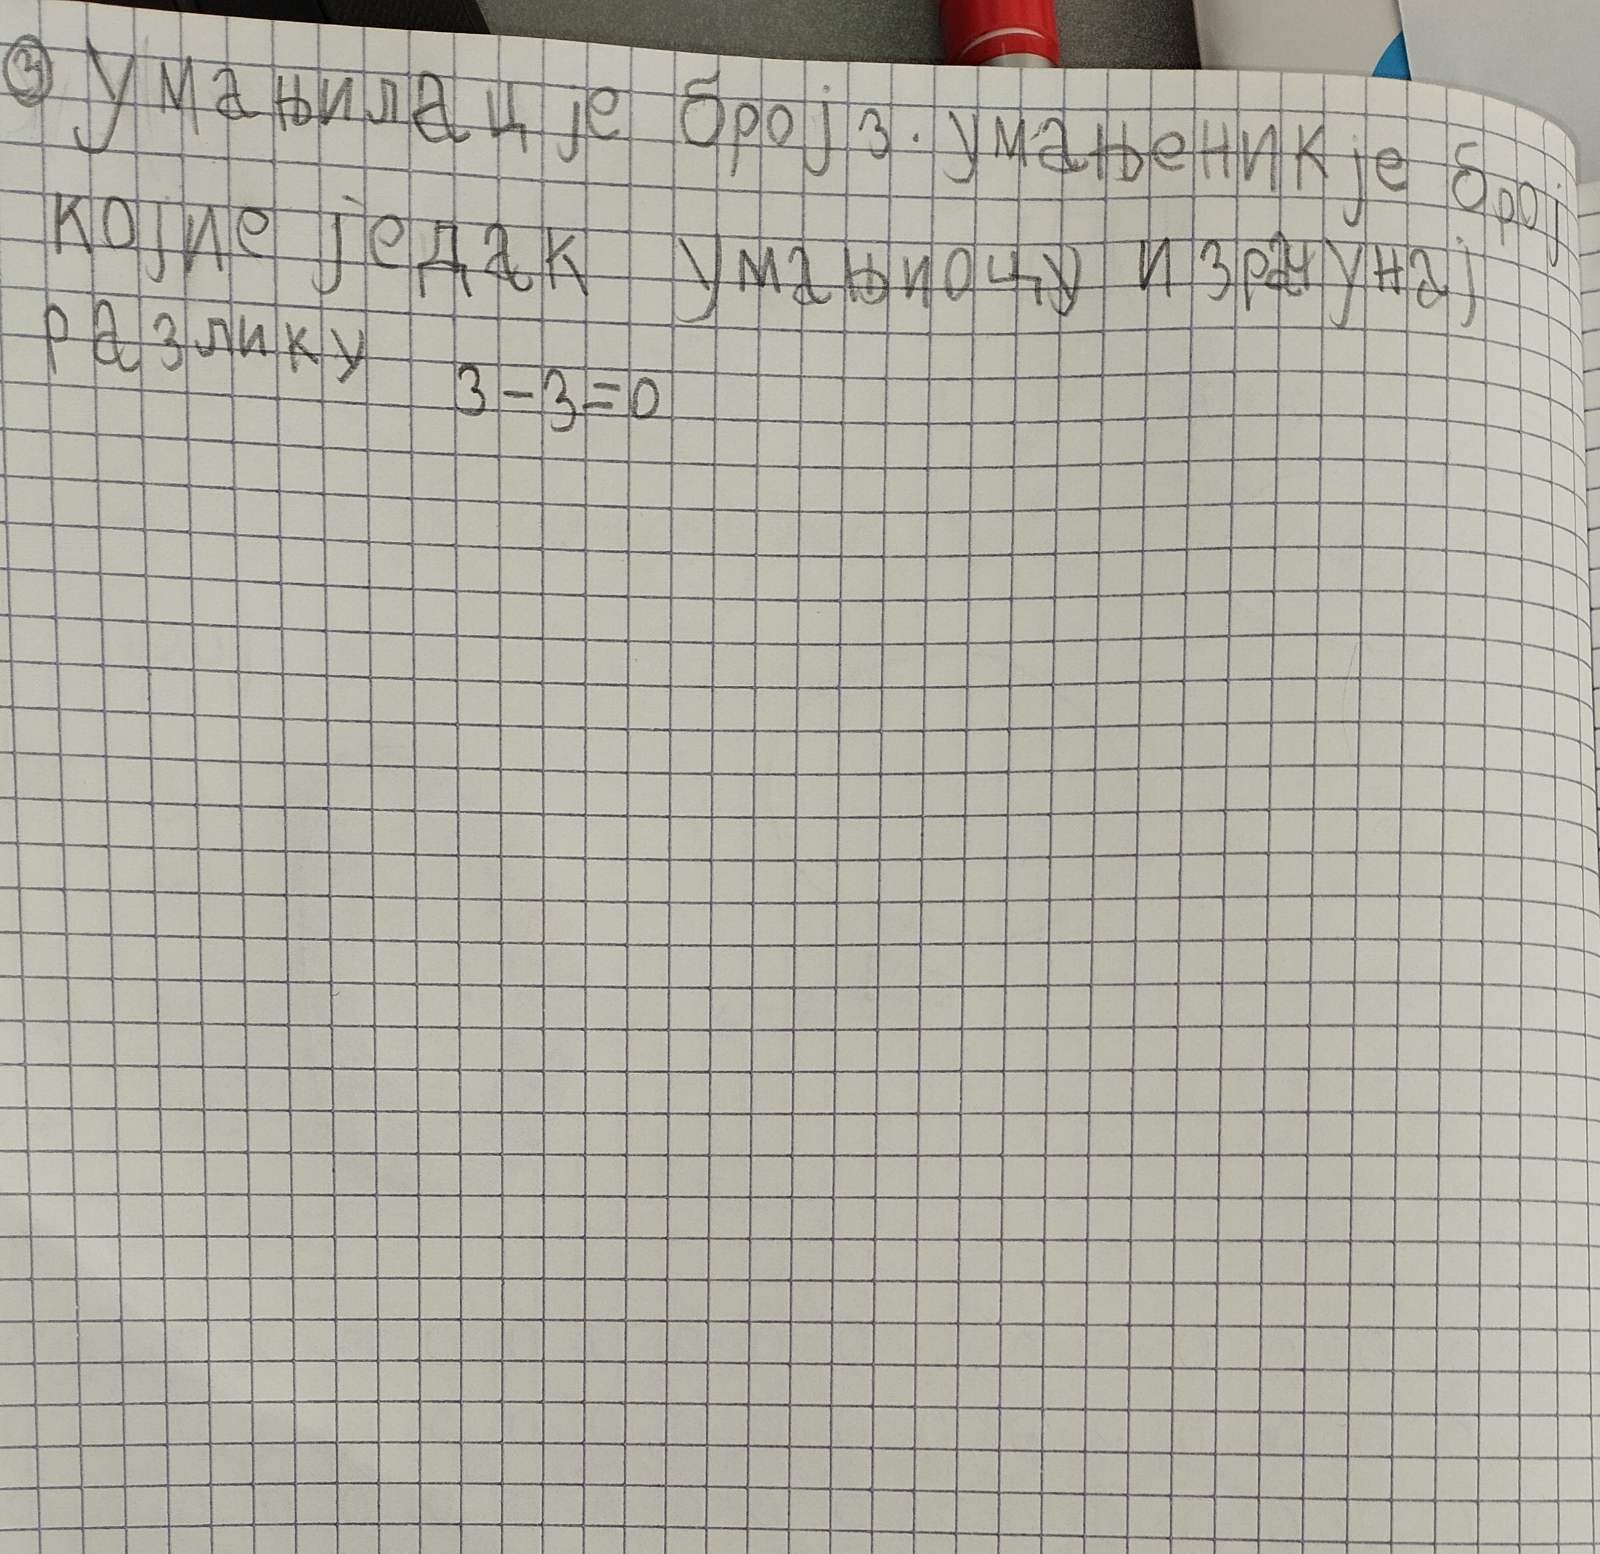 ③ Умањилац је број 3. Умањеник је број
којие једак умањиоцу израчунај
разлику 3-3=0